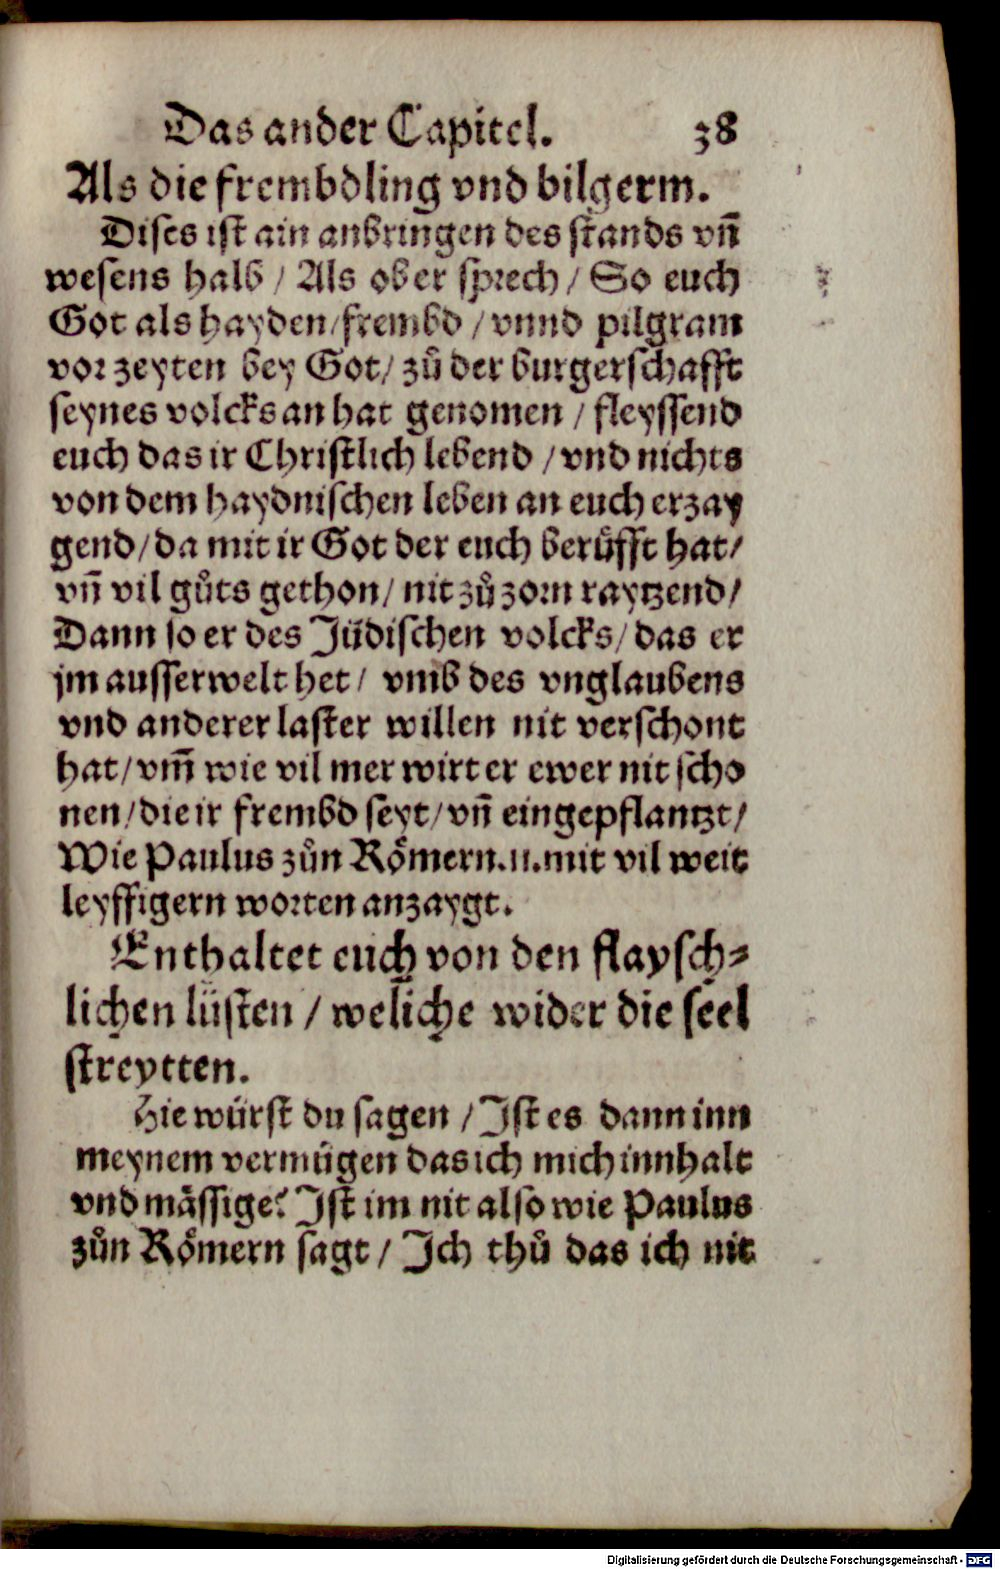 Das ander Capitel. 38
Als die frembdling vnd bilgerm.
Dises ist ain anbringen des stands vñ
wesens halb / Als ob er sprech / So euch
Got als hayden / frembd / vnnd pilgram
vor zeyten bey Got / zů der burgerschafft
seynes volcks an hat genomen / fleyssend
euch das ir Christlich lebend / vnd nichts
von dem haydnischen leben an euch erzay
gend / da mit ir Got der euch berüfft hat /
vñ vil gůts gethon / nit zů zorn raytzend /
Dann so er des Jüdischen volcks / das er
jm ausserwelt het / vmb des vnglaubens
vnd anderer laster willen nit verschont
hat / vm̃ wie vil mer wirt er ewer nit scho
nen / die ir frembd seyt / vñ eingepflantzt /
Wie Paulus zůn Römern .11. mit vil weit
leyffigern worten anzaygt.
Enthaltet euch von den flaysch⸗
lichen lüsten / weliche wider die seel
streytten.
Hie würst du sagen / Ist es dann inn
meynem vermügen das ich mich innhalt
vnd mässige? Ist im nit also wie Paulus
zůn Römern sagt / Ich thů das ich nit
Digitalisierung gefördert durch die Deutsche Forschungsgemeinschaft - DFG